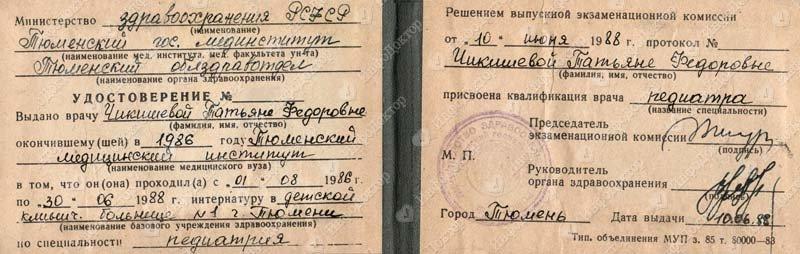 Министерство здравоохранения РСФСР
(наименование)
Тюменский гос. мединститут
(наименование мед. института, мед. факультета ун-та)
Тюменский облздравотдел
(наименование органа здравоохранения)
УДОСТОВЕРЕНИЕ №
Выдано врачу Чикишевой Татьяне Федоровне
(фамилия, имя, отчество)
окончившему(шей) в 1986 году Тюменский
медицинский институт
(наименование медицинского вуза)
в том, что он(она) проходил(а) с „01 “ 08 1986 г.
по „30 “ 06 1988 г. интернатуру в детской
клинич. больнице №1 г. Тюмени
(наименование базового учреждения здравоохранения)
по специальности педиатрия
Решением выпускной экзаменационной комиссии
от „10 “ июня 1988 г. протокол №
Чикишевой Татьяне Федоровне
(фамилия, имя, отчество)
присвоена квалификация врача педиатра
(название специальности)
Председатель
экзаменационной комиссии
(подпись)
М. П.
Руководитель
органа здравоохранения
(подпись)
Город Тюмень Дата выдачи 10.06.88
Тип. объединения МУП з. 85 т. 80000—83